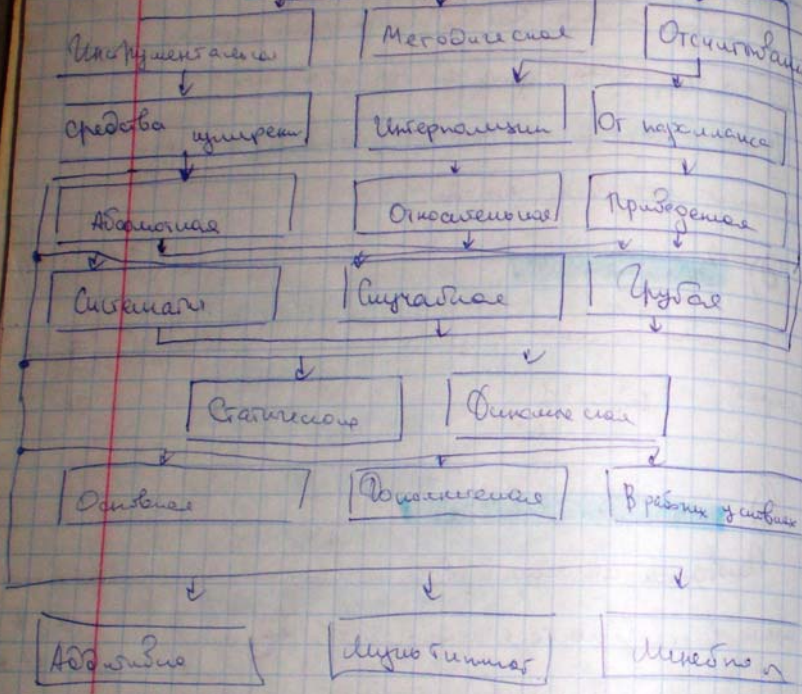 Инструментальная Методическая Отсчитывани
Средства измерени Интерполяции От параллакса
Абсолютная Относительная Приведенная
Системати Случайная Грубая
Статическая Динамическая
Основная Дополнительная В рабочих условиях
Аддитивно Мультипликат